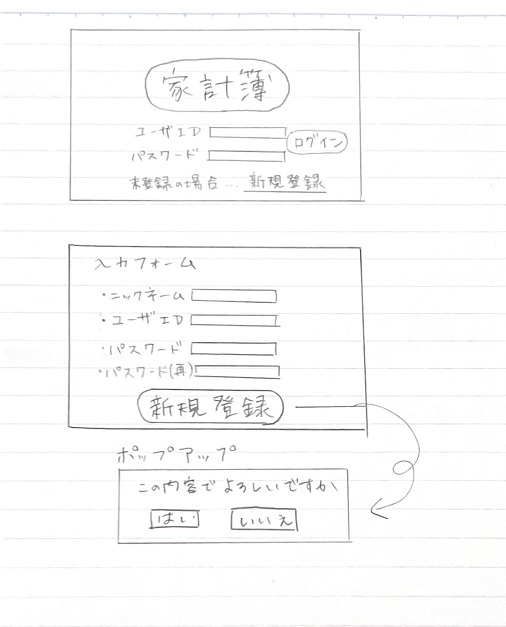 家計簿
ユーザID
ログイン
パスワード
未登録の場合… 新規登録
入力フォーム
・ニックネーム
・ユーザID
・パスワード
・パスワード(再)
新規登録
ポップアップ
この内容でよろしいですか
はい いいえ